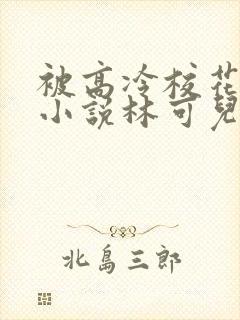 被高冷校花
小说林可儿
北島三郎